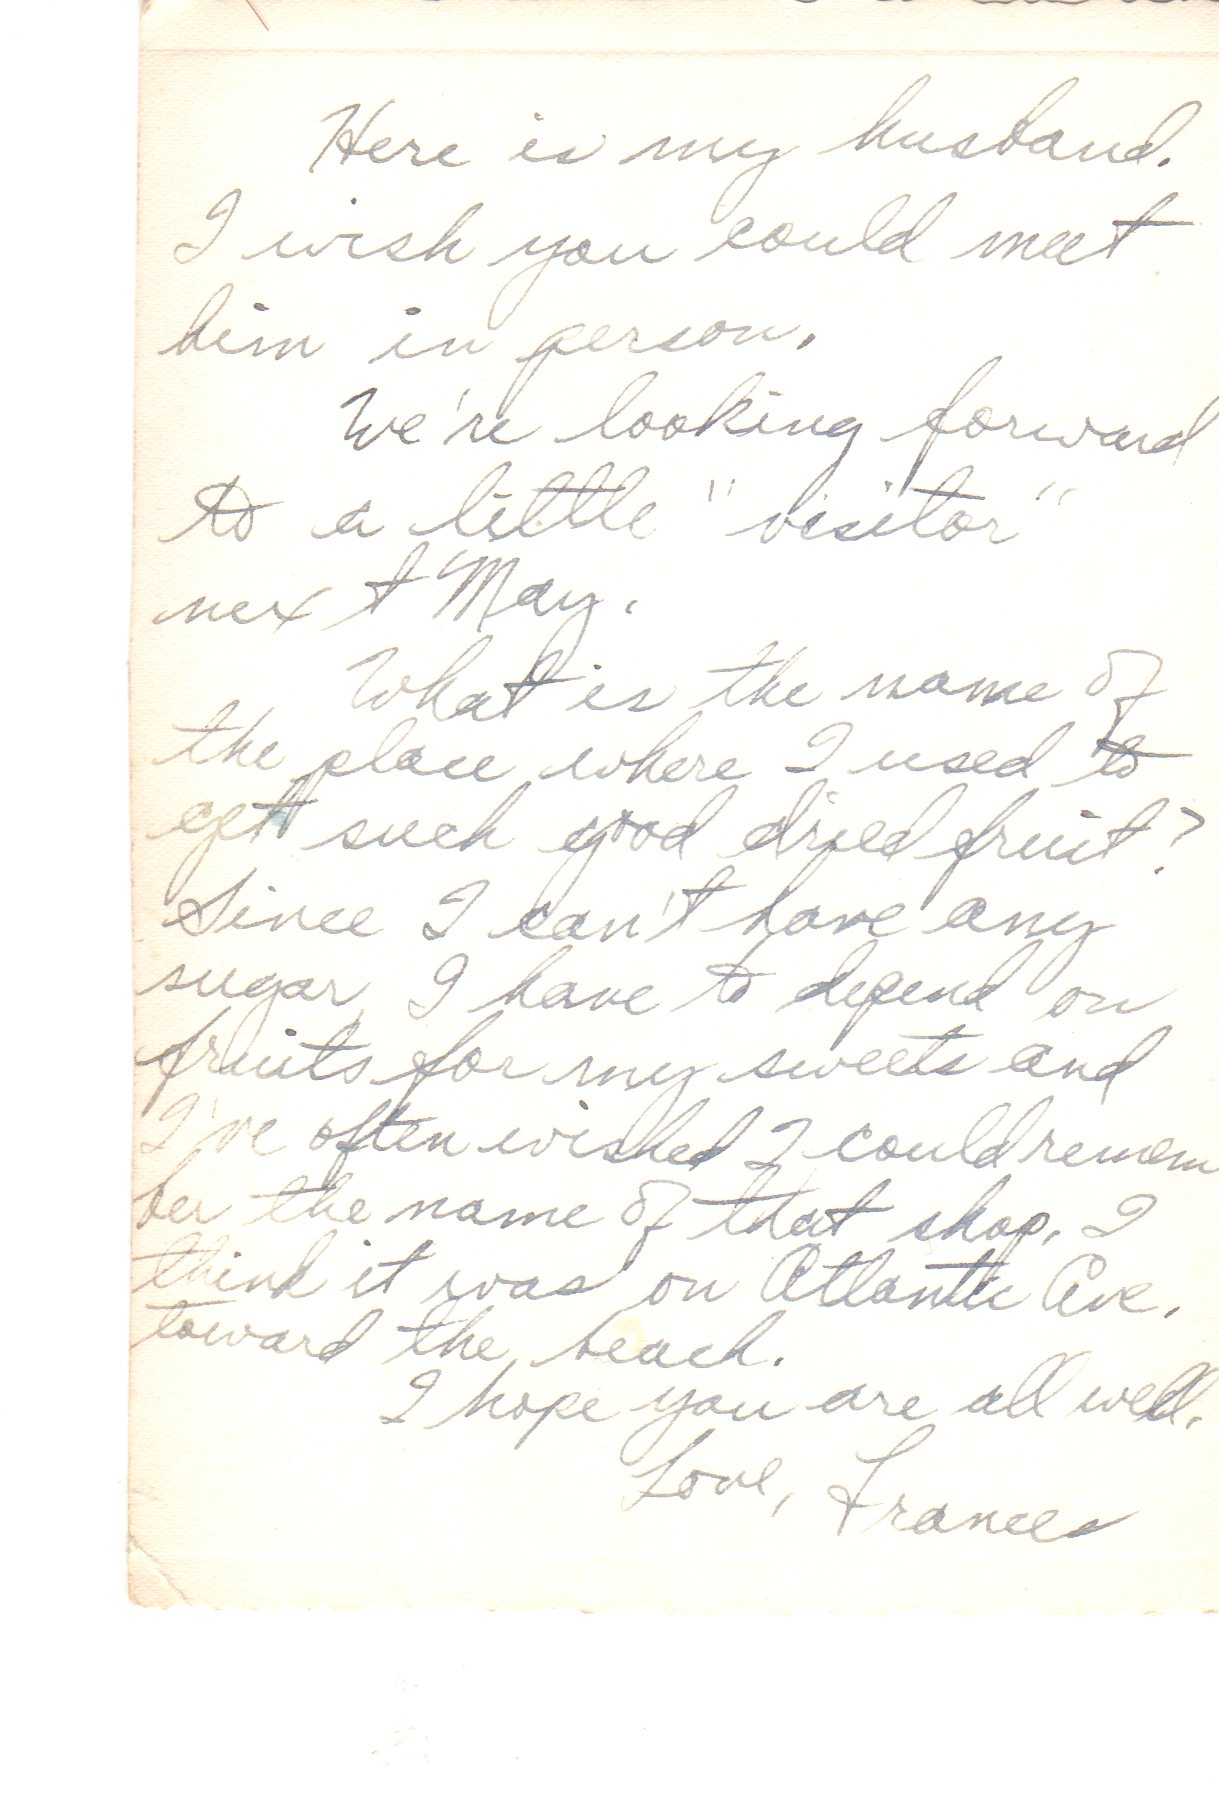 Here is my husband.
I wish you could meet
him in person.
We're looking forward
to a little "visitor"
next May.
What is the name of
the place where I used to
get such good dried fruit?
Since I can't have any
sugar, I have to depend on
fruits for my sweets and
I've often wished I could remem
ber the name of that shop. I
think it was on Atlantic Ave.
toward the beach.
I hope you are all well.
Love, Frances